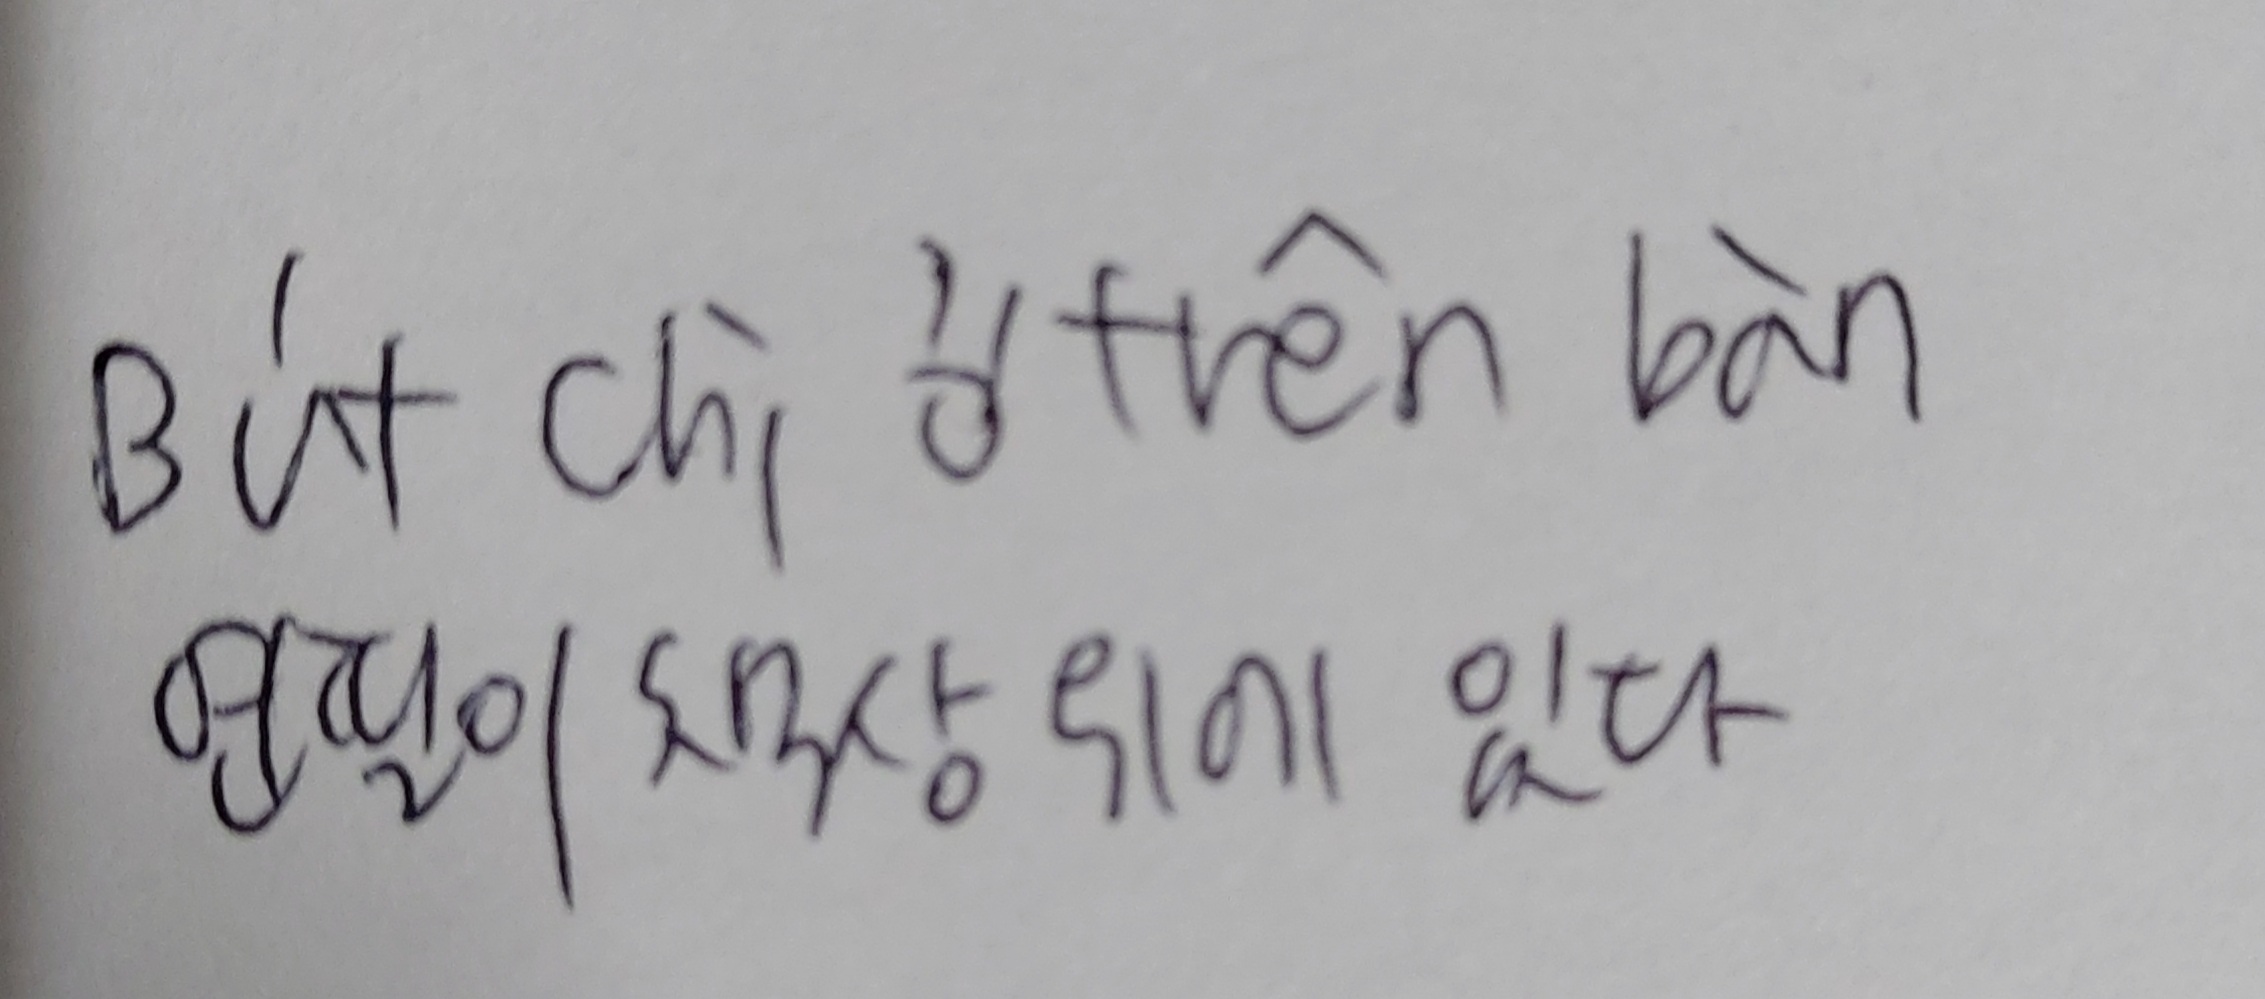 Bút chì ở trên bàn
연필이 책상 위에 있다